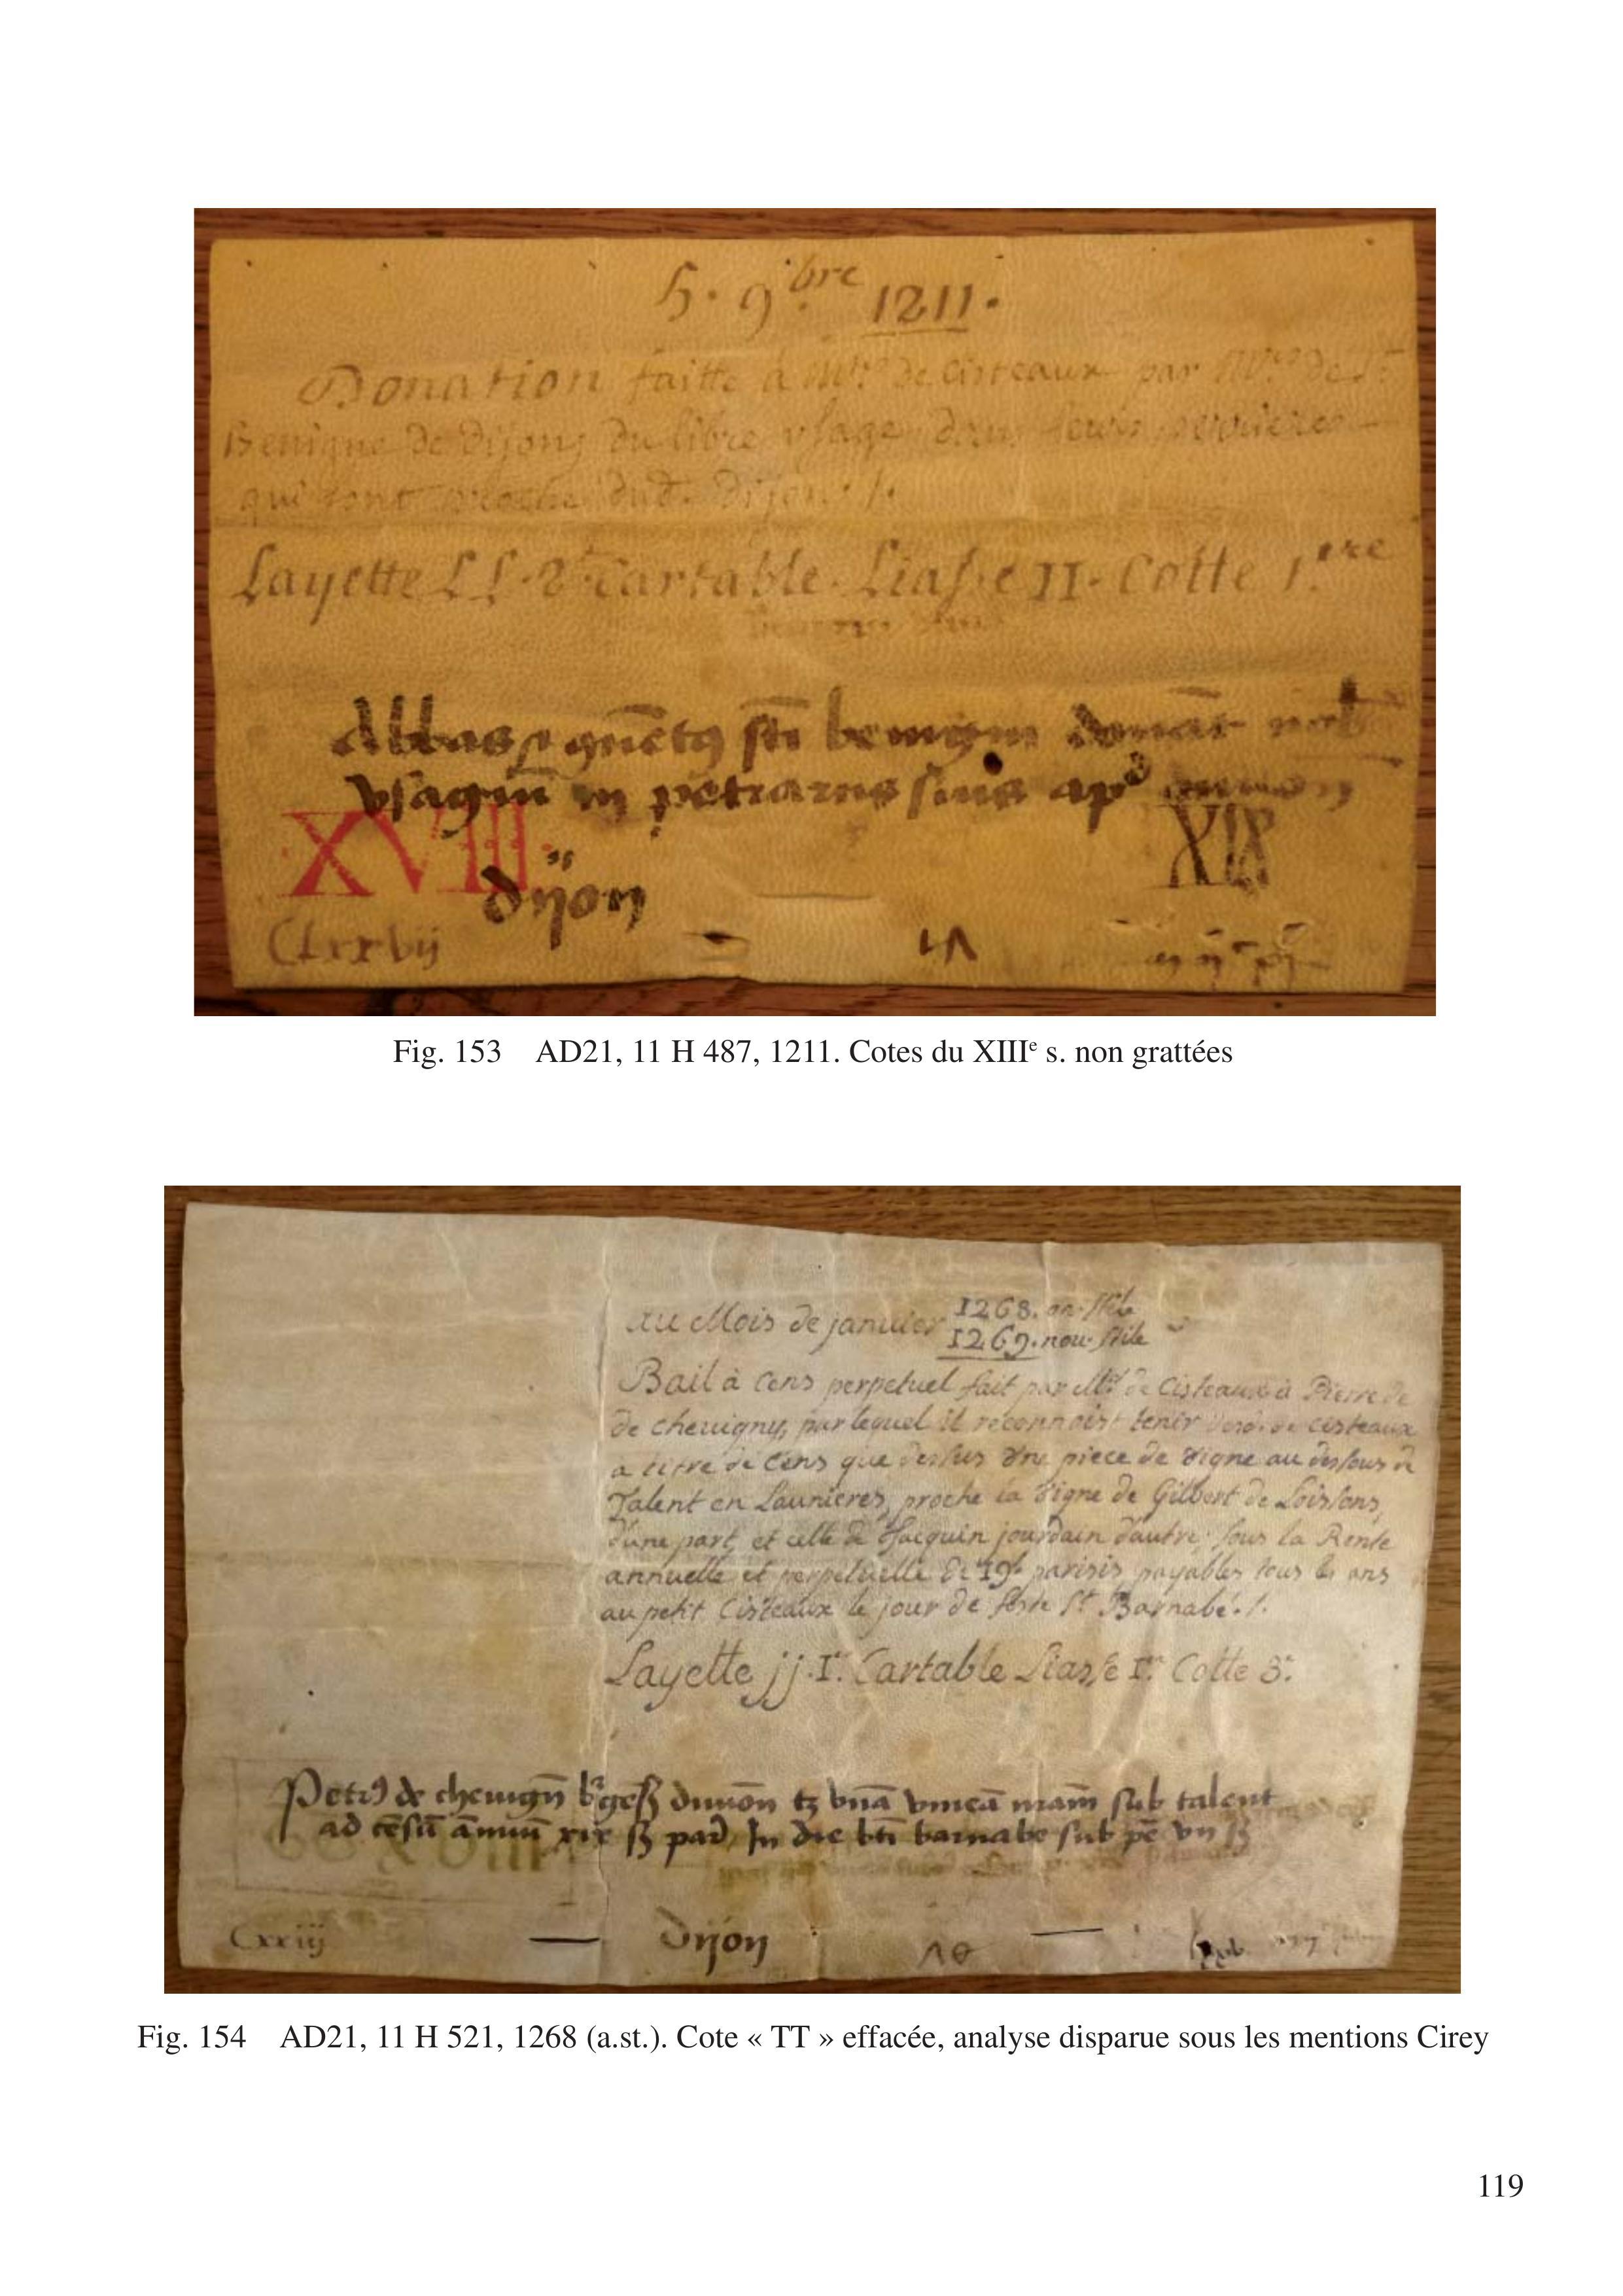 5. 9.bre 1211.
Donation faitte à Mrs de Cisteaux par Mrs de St
Benigne de dijon, du libre usage dans leurs perrieres
qui sont proche dud. Dijon ./.
Layette LL. 2e Cartable. Liasse II. Cotte 1.ere
Abbas
sti benigni
usagiu in petrariis suis apd
XVIII
XIX
dijon
Clxxvij
Fig. 153 AD21, 11 H 487, 1211. Cotes du XIIIe s. non grattées
au Mois de janvier 1268. an. stile
1269. nou. stile
Bail à Cens perpetuel fait par Mrs de Cisteaux à Pierre de
de chevigny, par lequel il reconnoist tenir de Cisteaux
a titre de Cens que dessus une piece de vigne au dessous de
Talent en Launieres, proche la vigne de Gilbert de Loissons,
d'une part, et celle de Jacquin jourdain d'autre, sous la Rente
annuelle et perpetuelle de 19s parisis payables tous les ans
au petit Cisteaux le jour de feste St Barnabé ./.
Layette jj. Ir. Cartable Liasse Ire. Cotte 3e.
Petrus de chevign divion tz una vinea nram sub talent
ad cesu annuu xix par In die bti barnabe sub pe
Cxxiij
Dijon
Fig. 154 AD21, 11 H 521, 1268 (a.st.). Cote « TT » effacée, analyse disparue sous les mentions Cirey
119